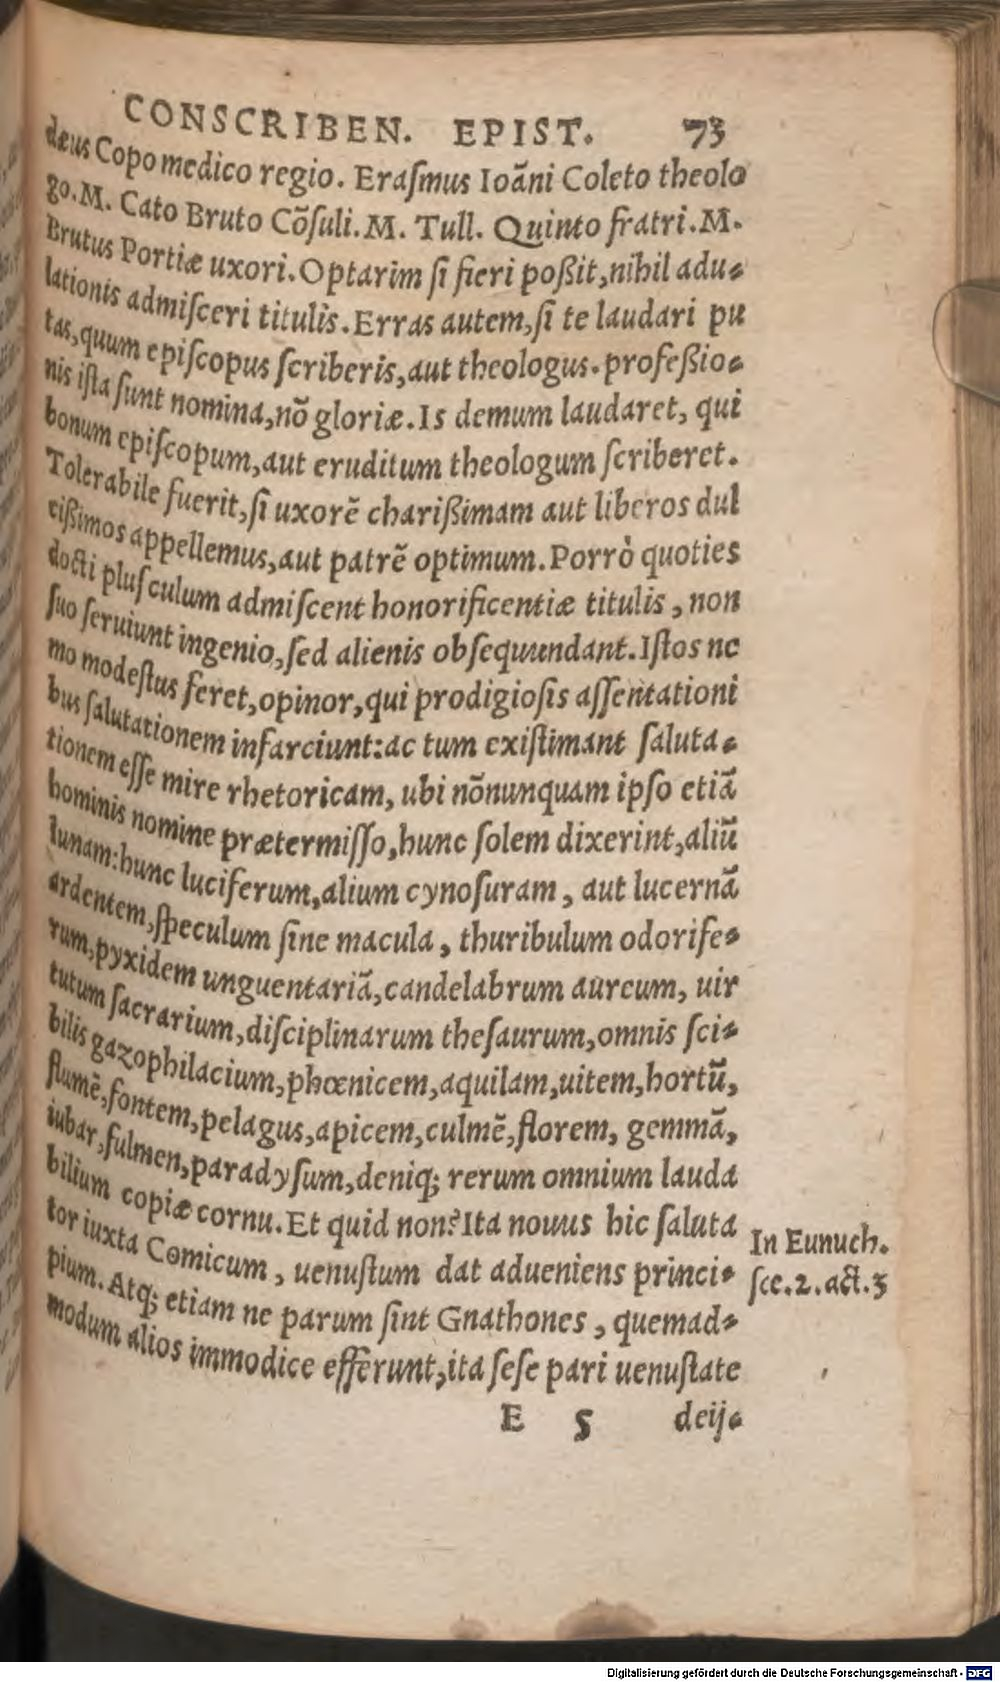 CONSCRIBEN. EPIST. 73
dæus Copo medico regio. Eraſmus Ioãni Coleto theolo
go. M. Cato Bruto Cõſuli. M. Tull. Quinto fratri. M.
Brutus Portiæ uxori. Optarim ſi fieri poßit, nihil adu-
lationis admiſceri titulis. Erras autem, ſi te laudari pu
tas, quum epiſcopus ſcriberis, aut theologus. profeßio-
nis iſta ſunt nomina, nõ gloriæ. Is demum laudaret, qui
bonum epiſcopum, aut eruditum theologum ſcriberet.
Tolerabile fuerit, ſi uxorẽ charißimam aut liberos dul
cißimos appellemus, aut patrẽ optimum. Porrò quoties
docti pluſculum admiſcent honorificentiæ titulis, non
ſuo ſeruiunt ingenio, ſed alienis obſequundant. Iſtos ne
mo modeſtus feret, opinor, qui prodigioſis aſſentationi
bus ſalutationem infarciunt: ac tum exiſtimant ſaluta-
tionem eſſe mire rhetoricam, ubi nõnunquam ipſo etiã
hominis nomine prætermiſſo, hunc ſolem dixerint, aliũ
lunam: hunc luciferum, alium cynoſuram, aut lucernã
ardentem, ſpeculum ſine macula, thuribulum odorife-
rum, pyxidem unguentariã, candelabrum aureum, uir
tutum ſacrarium, diſciplinarum theſaurum, omnis ſci-
bilis gazophilacium, phœnicem, aquilam, uitem, hortũ,
flumẽ, fontem, pelagus, apicem, culmẽ, florem, gemmã,
iubar, fulmen, paradyſum, deniq; rerum omnium lauda
bilium copiæ cornu. Et quid non? Ita nouus hic ſaluta
tor iuxta Comicum, uenuſtum dat adueniens princi-
pium. Atq; etiam ne parum ſint Gnathones, quemad-
modum alios immodice efferunt, ita ſeſe pari uenuſtate
In Eunuch.
ſce. 2. act. 3
E 5 deij-
Digitalisierung gefördert durch die Deutsche Forschungsgemeinschaft - DFG